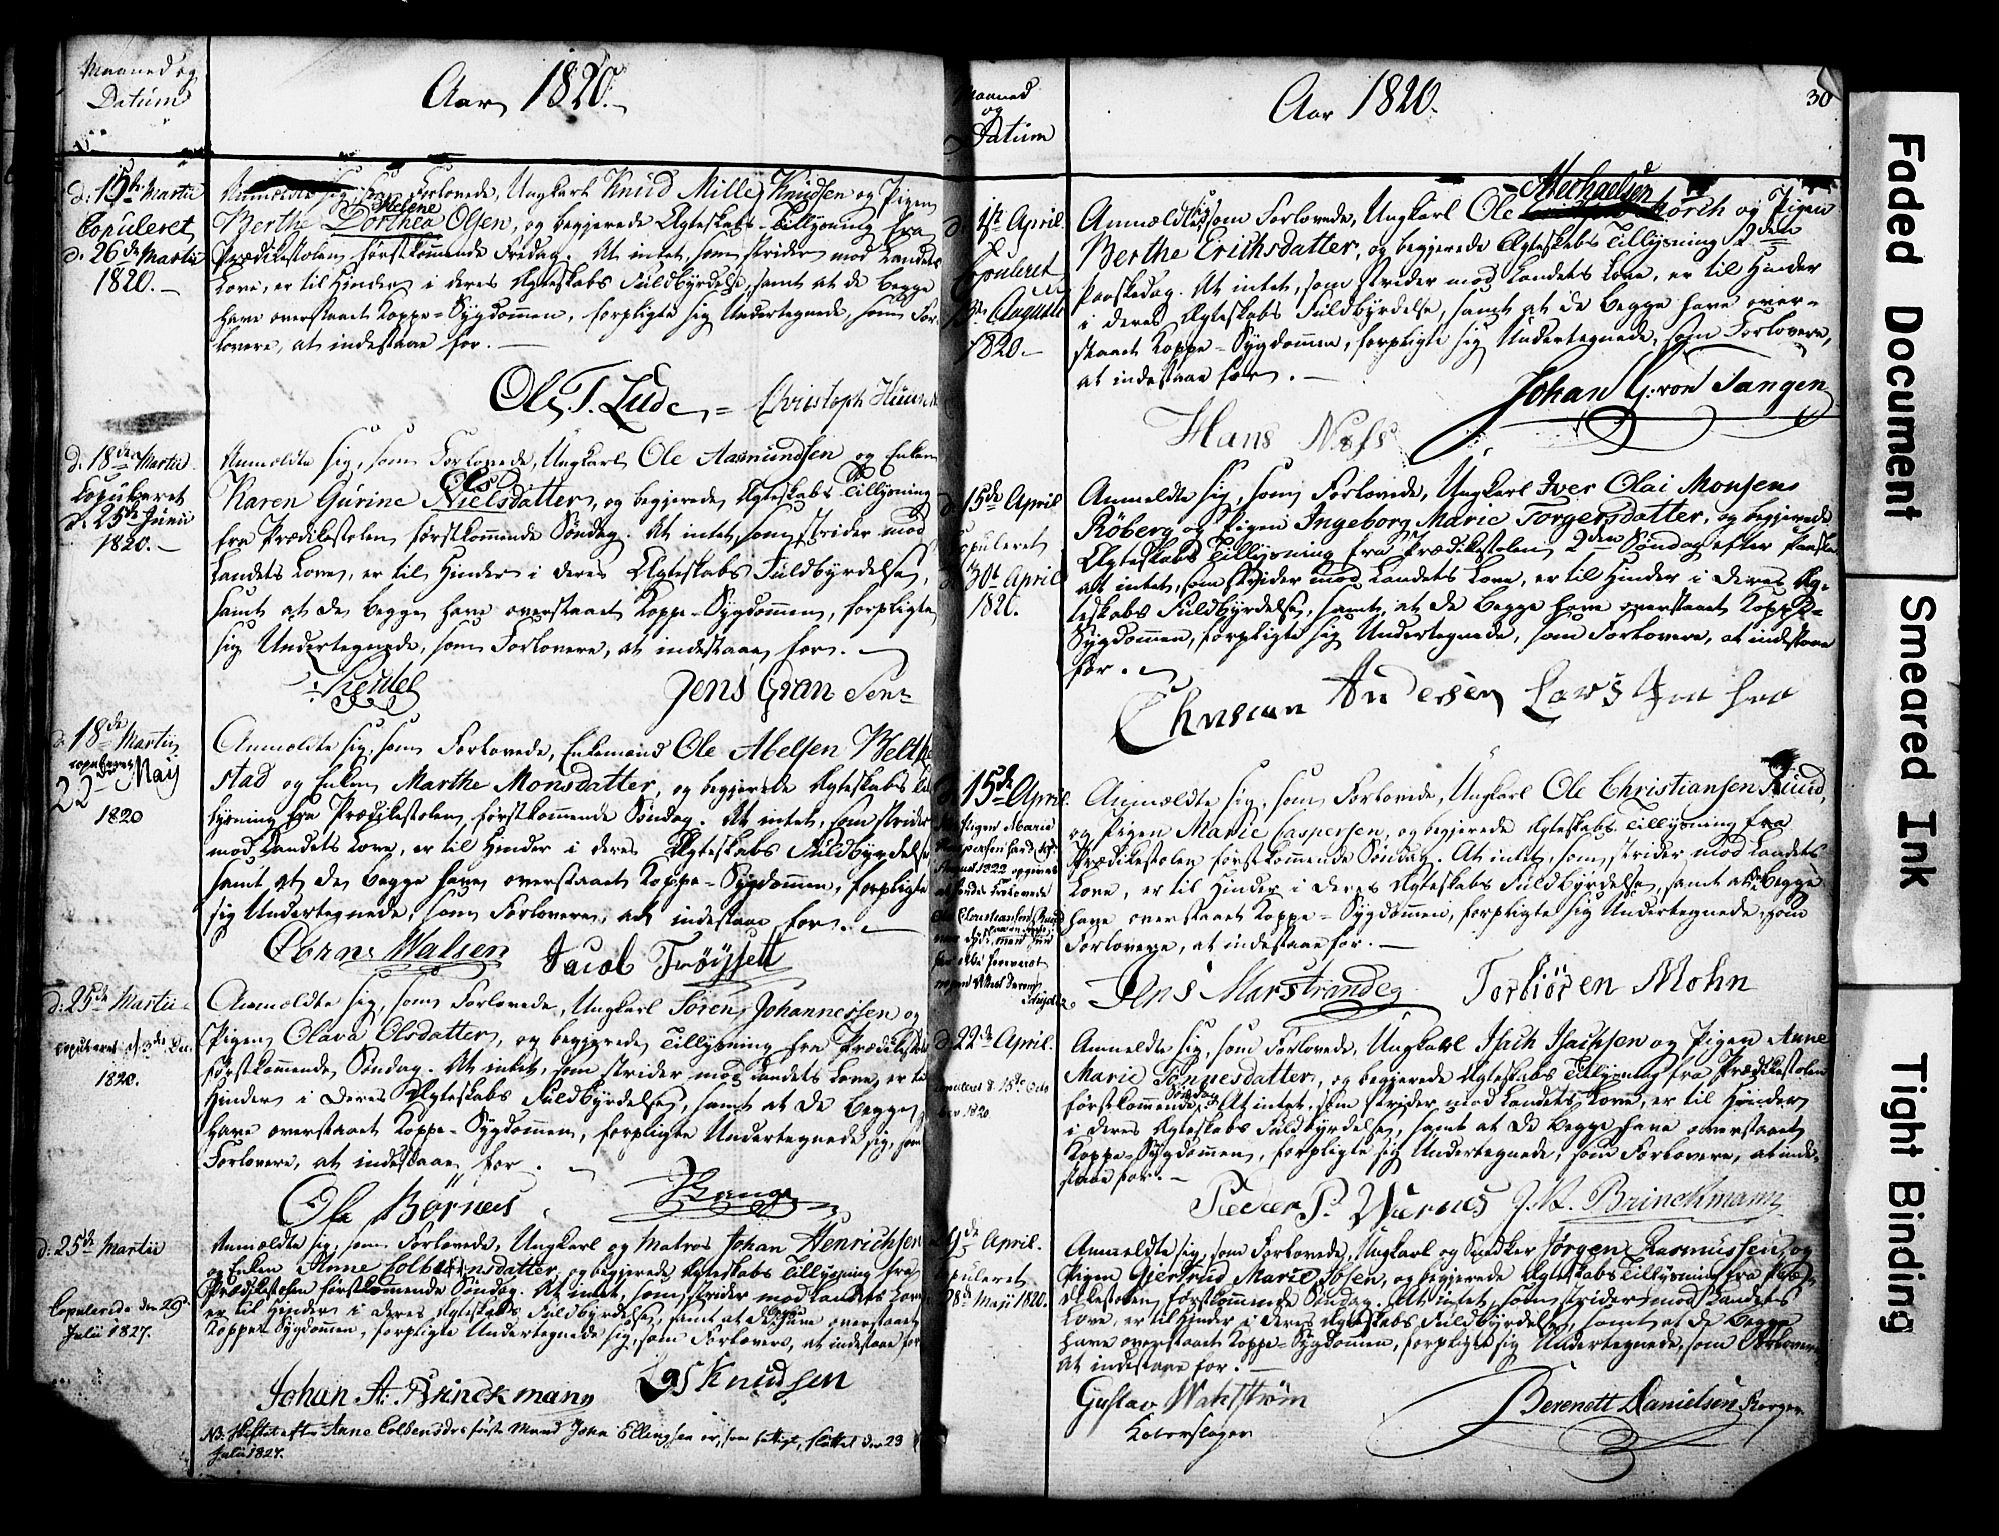 Maaned og
Datum
Aar 1820.
d. 15de Martii
Copuleret
d. 26de Martii
1820.
Anmeldte sig, som Forlovede, Ungkarl Knud Mille Knudsen og Pigen
Helene
Berthe Dorthea Olsen, og begjerede Ægteskabs-Tillysning fra
Prædikestolen førstkommende Fredag. At intet, som strider mod Landets
Love, er til Hinder i deres Ægteskabs Fuldbyrdelse, samt at de begge
have overstaaet Koppe-Sygdommen, forpligte sig Undertegnede, som For-
lovere, at indestaae for.
Ole T. Lude Christoph
d. 18de Martii
Copuleret
d. 25de Junii
1820.
Anmeldte sig, som Forlovede, Ungkarl Ole Aamundsen og Enken
Ols
Karen Gurine Nielsdatter, og begjerede Ægteskabs Tillysning
fra Prædikestolen førstkommende Søndag. At intet, som strider mod
Landets Love, er til Hinder i deres Ægteskabs Fuldbyrdelse,
samt at de begge have overstaaet Koppe-Sygdommen, forpligte
sig Undertegnede, som Forlovere, at indestaae for.
Jens Gran Senr
d. 18de Martii
copuleret
22de Maij
1820
Anmeldte sig, som Forlovede, Enkemand Ole Abelsen Velthe
stad og Enken Marthe Monsdatter, og begjerede Ægteskabs
lysning fra Prædikestolen førstkommende Søndag. At intet, som strider
mod Landets Love, er til Hinder i deres Ægteskabs Fuldbyrdelse
samt at de begge have overstaaet Koppe-Sygdommen, forpligte
sig Undertegnede, som Forlovere, at indestaae for.
Walsen Jacob Trøjsett
d. 25de Martii
copuleret d. 3de Dec.
1820.
Anmeldte sig, som Forlovede, Ungkarl Søren Johannessen og
Pigen Olava Olsdatter, og begjerede Tillysning fra Prædikestolen
førstkommende Søndag. At intet, som strider mod Landets Love, er til
Hinder i deres Ægteskabs Fuldbyrdelse, samt at de begge
have overstaaet Koppe-Sygdommen, forpligte Undertegnede sig, som
Forlovere, at indestaae for.
Ole Børnes Bange
d. 25de Martii
Copulerede den 29de
Julii 1827.
Anmeldte sig, som Forlovede, Ungkarl og Matros Johan Henrichsen
og Enken Anne Colbensdatter, og begjerede Ægteskabs Tillysning fra
Prædikestolen førstkommende Søndag. At intet, som strider mod Landets Love
er til Hinder i deres Ægteskabs Fuldbyrdelse, samt at de begge overstaaet
Koppe-Sygdommen, forpligte Undertegnede sig, som Forlovere, at indestaae for
Johan A. Brinckmann Lars Knudsen
NB. Skiftet efter Anne Colbensdrs første Mand John Ellingsen er, som fattigt, sluttet den 23
Julii 1827.
Maaned
og
Datum
Aar 1820.
30
d. 1st April
Copuleret
13de Augusti
1820.
Mechaelsen
Anmeldte sig, som Forlovede, Ungkarl Ole Mørch og Pigen
Berthe Erichsdatter, og begjerede Ægteskabs Tillysning 2den
Paaskedag. At intet, som strider mod Landets Love, er til Hinder
i deres Ægteskabs Fuldbyrdelse, samt at de begge have over-
staaet Koppe-Sygdommen, forpligte sig Undertegnede, som Forlovere,
at indestaae for.
Johan G. von Tangen
Hans Næss
d. 15de April
Copuleret
d. 30t April
1820.
Anmeldte sig, som Forlovede, Ungkarl Iver Olai Monsens
Røberg og Pigen Ingeborg Marie Torgersdatter, og begjerede
Ægteskabs Tillysning fra Prædikestolen 2den Søndag efter Paaske
at intet, som strider mod Landets Love, er til Hinder i deres Æg-
teskabs Fuldbyrdelse, samt, at de begge have overstaaet Koppe-
Sygdommen, forpligte sig Undertegnede, som Forlovere, at indestaae
for.
Christian Andersen Lars
d. 15de April.
Pigen Marie
Caspersen
1822 opgivet
Forlovede
Ole Christiansen Ruud
Anmeldte sig, som Forlovede, Ungkarl Ole Christiansen Ruud,
og Pigen Marie Caspersen, og begjerede Ægteskabs Tillysning fra
Prædikestolen førstkommende Søndag. At intet, som strider mod Landets
Love, er til Hinder i deres Ægteskabs Fuldbyrdelse, samt at de begge
have overstaaet Koppe-Sygdommen, forpligte sig Undertegnede, som
Forlovere, at indestaae for.
Jens Marstrander Torbiören Mohn
d. 22de April.
Copuleret d. 15de Octo
ber 1820.
Anmeldte sig, som Forlovede, Ungkarl Isach Isachsen og Pigen Anne
Marie Tønnesdatter, og begjerede Ægteskabs Tillysning fra Prædikestolen
Søndag
førstkommende. At intet, som strider mod Landets Love, er til Hinder
i deres Ægteskabs Fuldbyrdelse, samt at de begge have overstaaet
Koppe-Sygdommen, forpligte sig Undertegnede, som Forlovere, at inde-
staae for.
Peder P. Warnes J. A. Brinckmann
April.
Copuleret
28de Maji 1820.
Anmeldte sig, som Forlovede, Ungkarl og Snedker Jørgen Rasmussen, og
Pigen Giertrud Marie Ibsen, og begjerede Ægteskabs Tillysning fra Præ-
dikestolen førstkommende Søndag. At intet, som strider mod Landets
Love, er til Hinder i deres Ægteskabs Fuldbyrdelse, samt at de begge
have overstaaet Koppe-Sygdommen, forpligte sig Undertegnede, som Forlovere
at indestaae for.
Gustav Wahlstrøm Berenett Danielsen Borger
Koberslager
Faded Document
Smeared Ink
Tight Binding